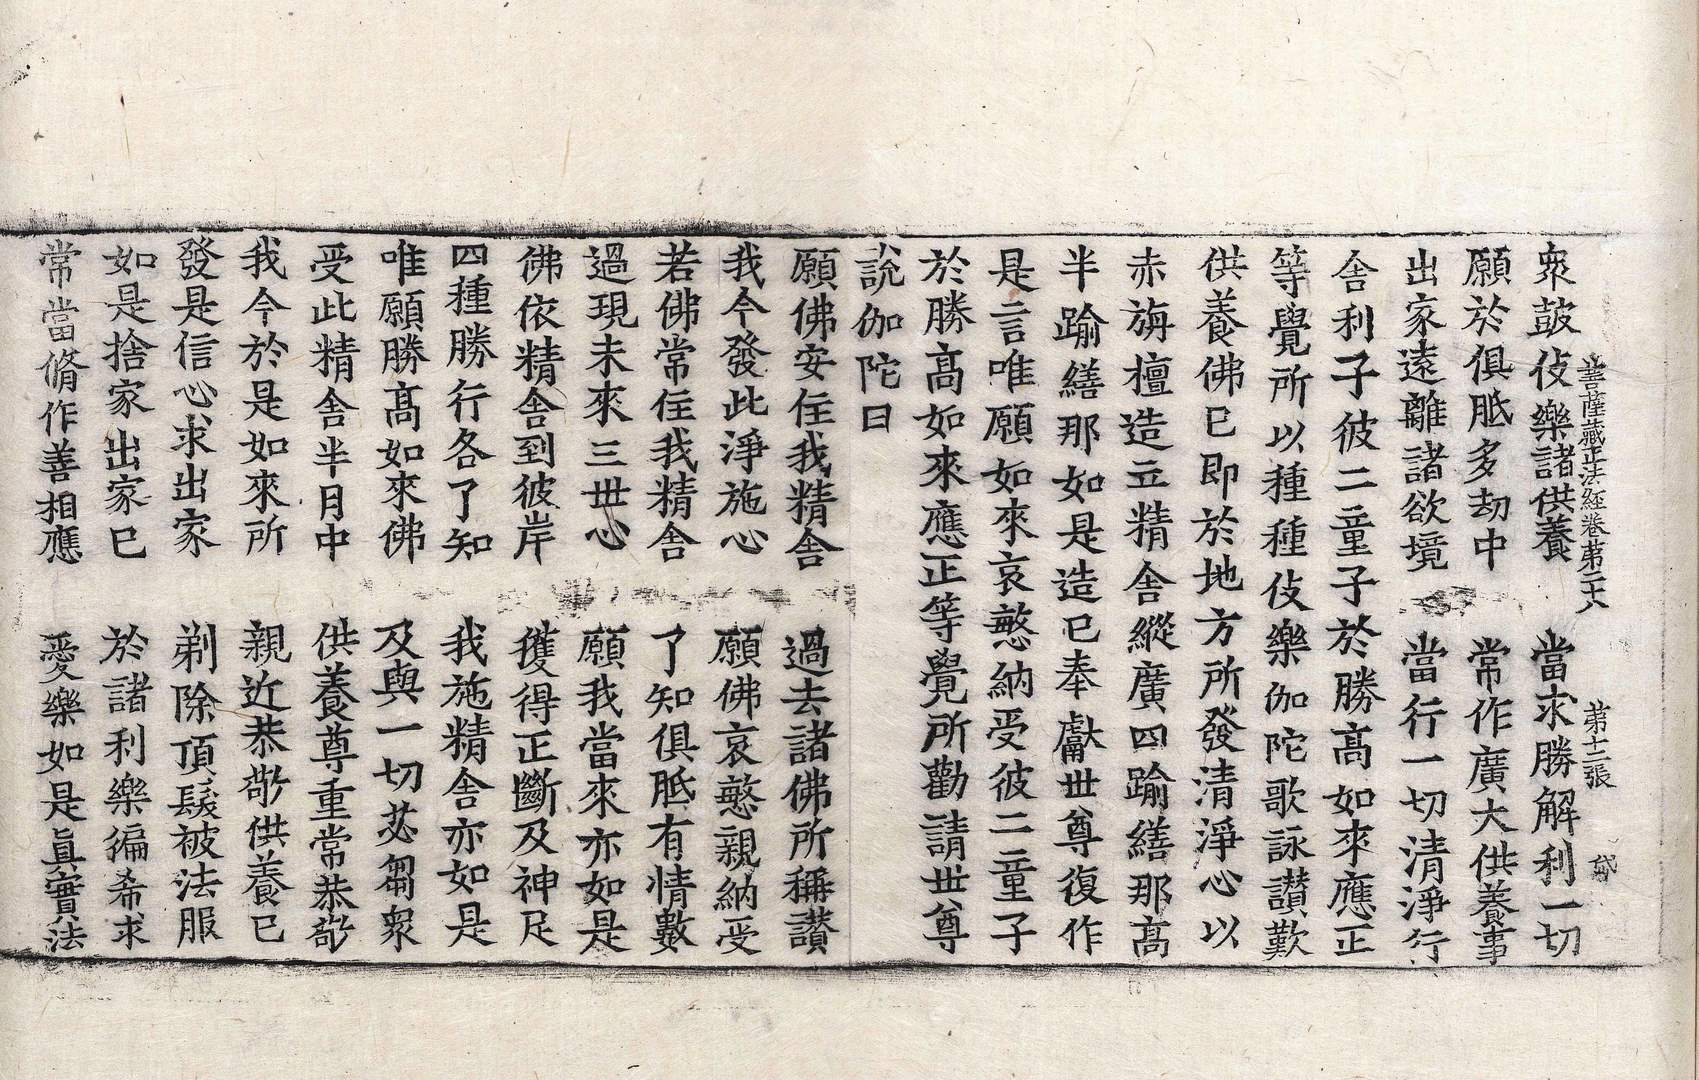 菩薩藏正法經卷第二十八 第十二張
衆鼓伎樂諸供養 當求勝解利一切
願於俱胝多劫中 常作廣大供養事
出家遠離諸欲境 當行一切清淨行
舍利子彼二童子於勝高如來應正
等覺所以種種伎樂伽陀歌詠讃歎
供養佛已即於地方所發清淨心以
赤旃檀造立精舍縱廣四踰繕那高
半踰繕那如是造已奉獻世尊復作
是言唯願如來哀愍納受彼二童子
於勝高如來應正等覺所勸請世尊
說伽陀曰
願佛安住我精舍 過去諸佛所稱讃
我今發此淨施心 願佛哀愍親納受
若佛常住我精舍 了知俱胝有情數
過現未來三世心 願我當來亦如是
佛依精舍到彼岸 獲得正斷及神足
四種勝行各了知 我施精舍亦如是
唯願勝高如來佛 及與一切苾芻衆
受此精舍半月中 供養尊重常恭敬
我今於是如來所 親近恭敬供養已
發是信心求出家 剃除頂髮被法服
如是捨家出家已 於諸利樂徧希求
常當脩作善相應 愛樂如是眞實法